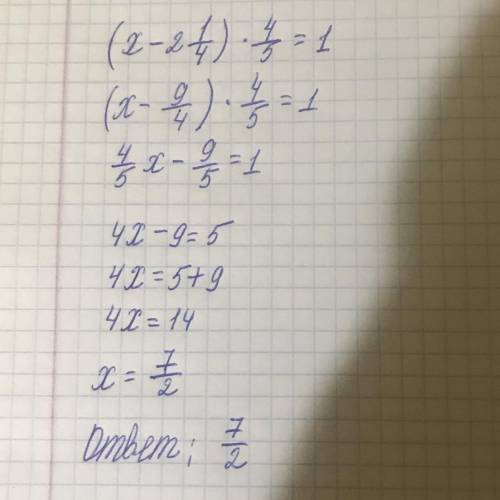 (x - 2 1/4) · 4/5 = 1
(x - 9/4) · 4/5 = 1
4/5 x - 9/5 = 1
4x - 9 = 5
4x = 5 + 9
4x = 14
x = 7/2
Ответ; 7/2